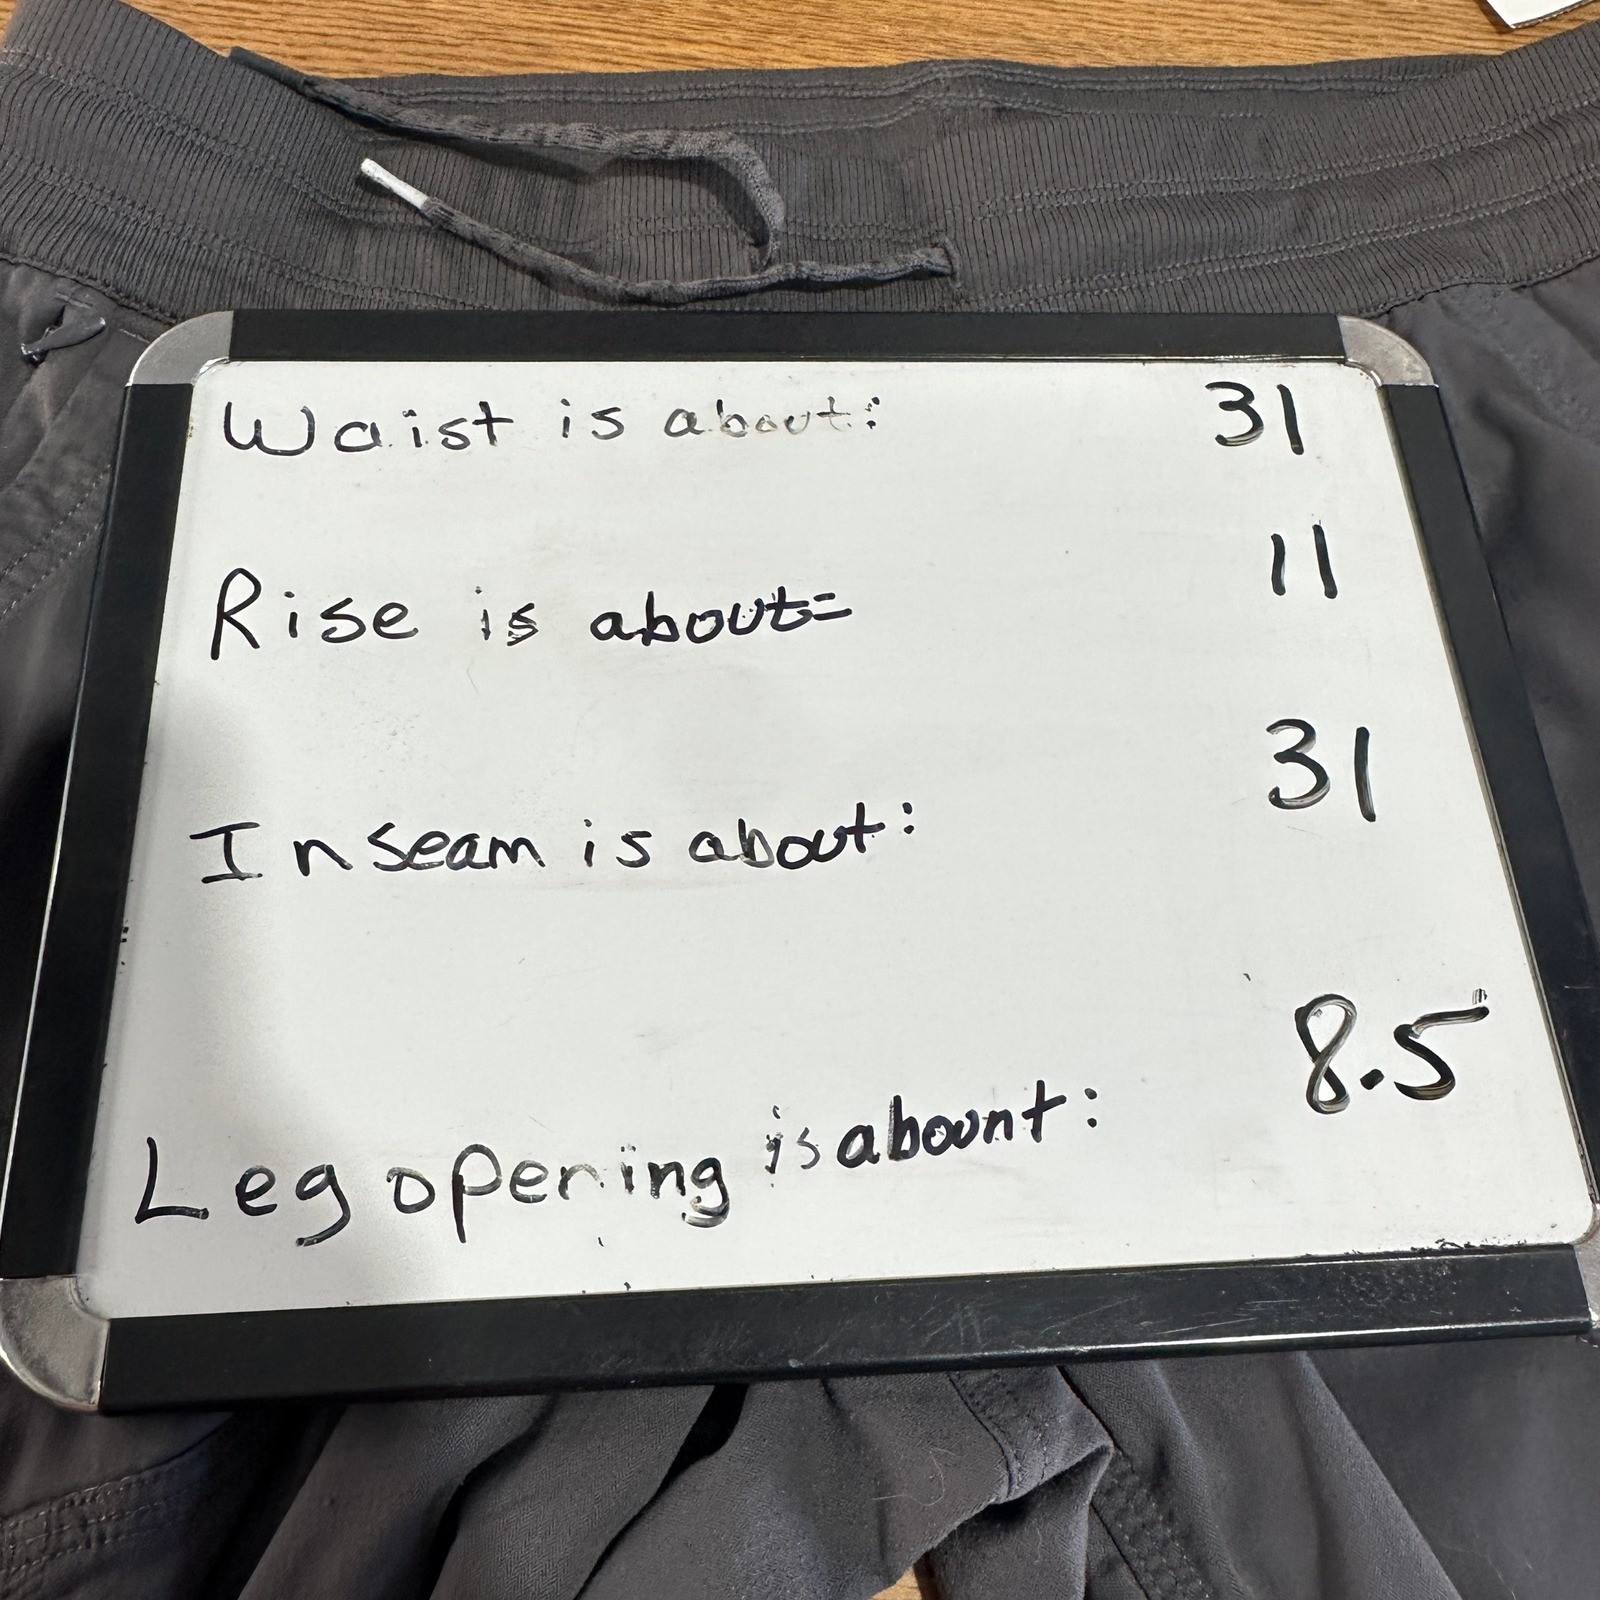 Waist is about: 31
Rise is about= 11
Inseam is about: 31
Leg opening is abount: 8.5